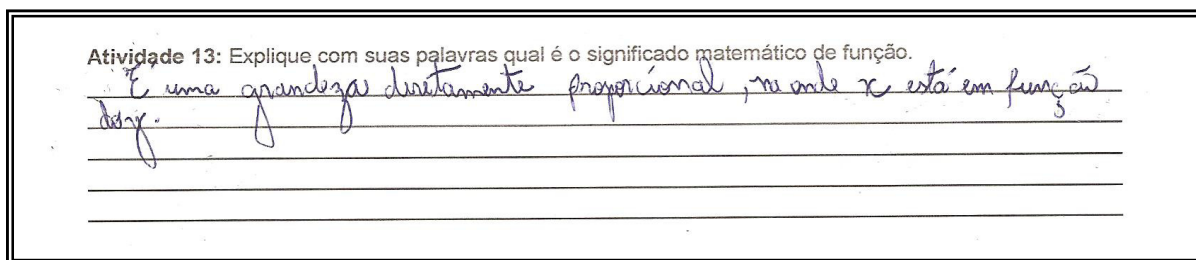 Atividade 13: Explique com suas palavras qual é o significado matemático de função.
É uma grandeza diretamente proporcional, na onde x está em função
do y.